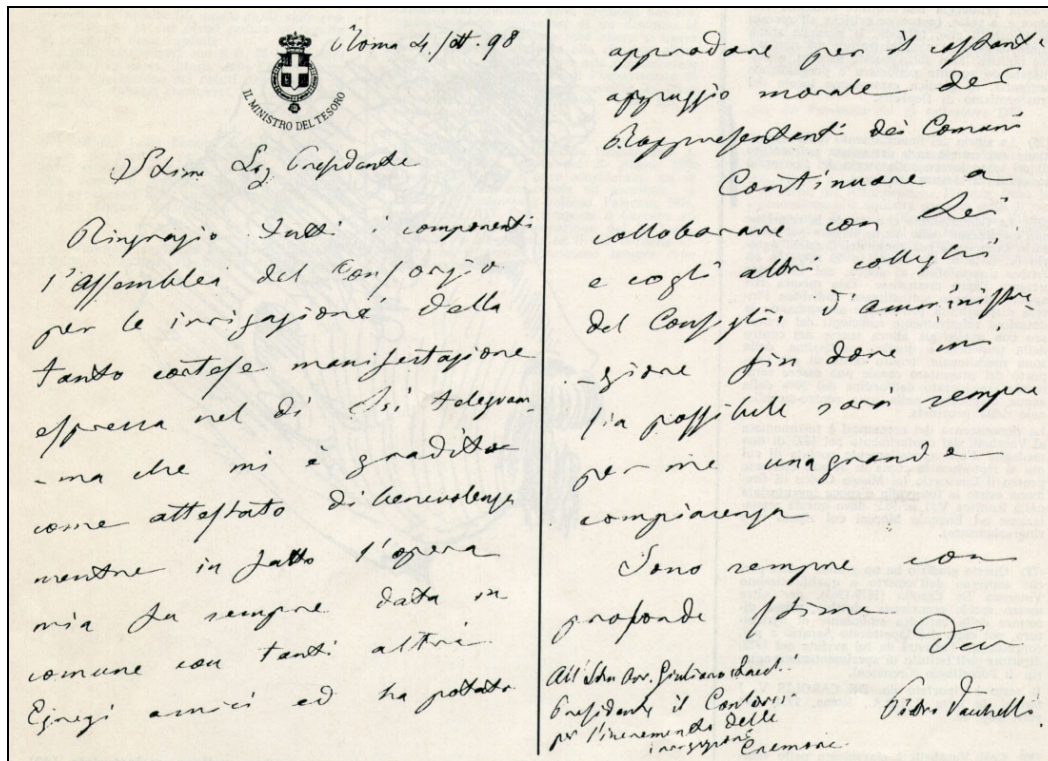 Roma 4/ott. 98
IL MINISTRO DEL TESORO
Sig. Presidente
Ringrazio tutti i componenti
l'assemblea del Consorzio
per le irrigazioni della
tanto cortese manifestazione
espressa nel di telegram-
-ma che mi è gradito
come attestato di benevolenza
mentre in fatto l'opera
mia fu sempre data in
comune con tanti altri
Egregi amici ed ha potuto
approdare per il costante
appoggio morale dei
Rappresentanti dei Comuni
Continuare a
collaborare con Lei
e cogli altri colleghi
del Consiglio d'amministra-
-zione fin dove mi
sia possibile sarà sempre
per me una grande
compiacenza
Sono sempre con
profonda stima
Dev.
All' Avv. Giuliano
Presidente il Consorzio
per l'incremento delle
irrigazione
Cremona.
Pietro Vacchelli